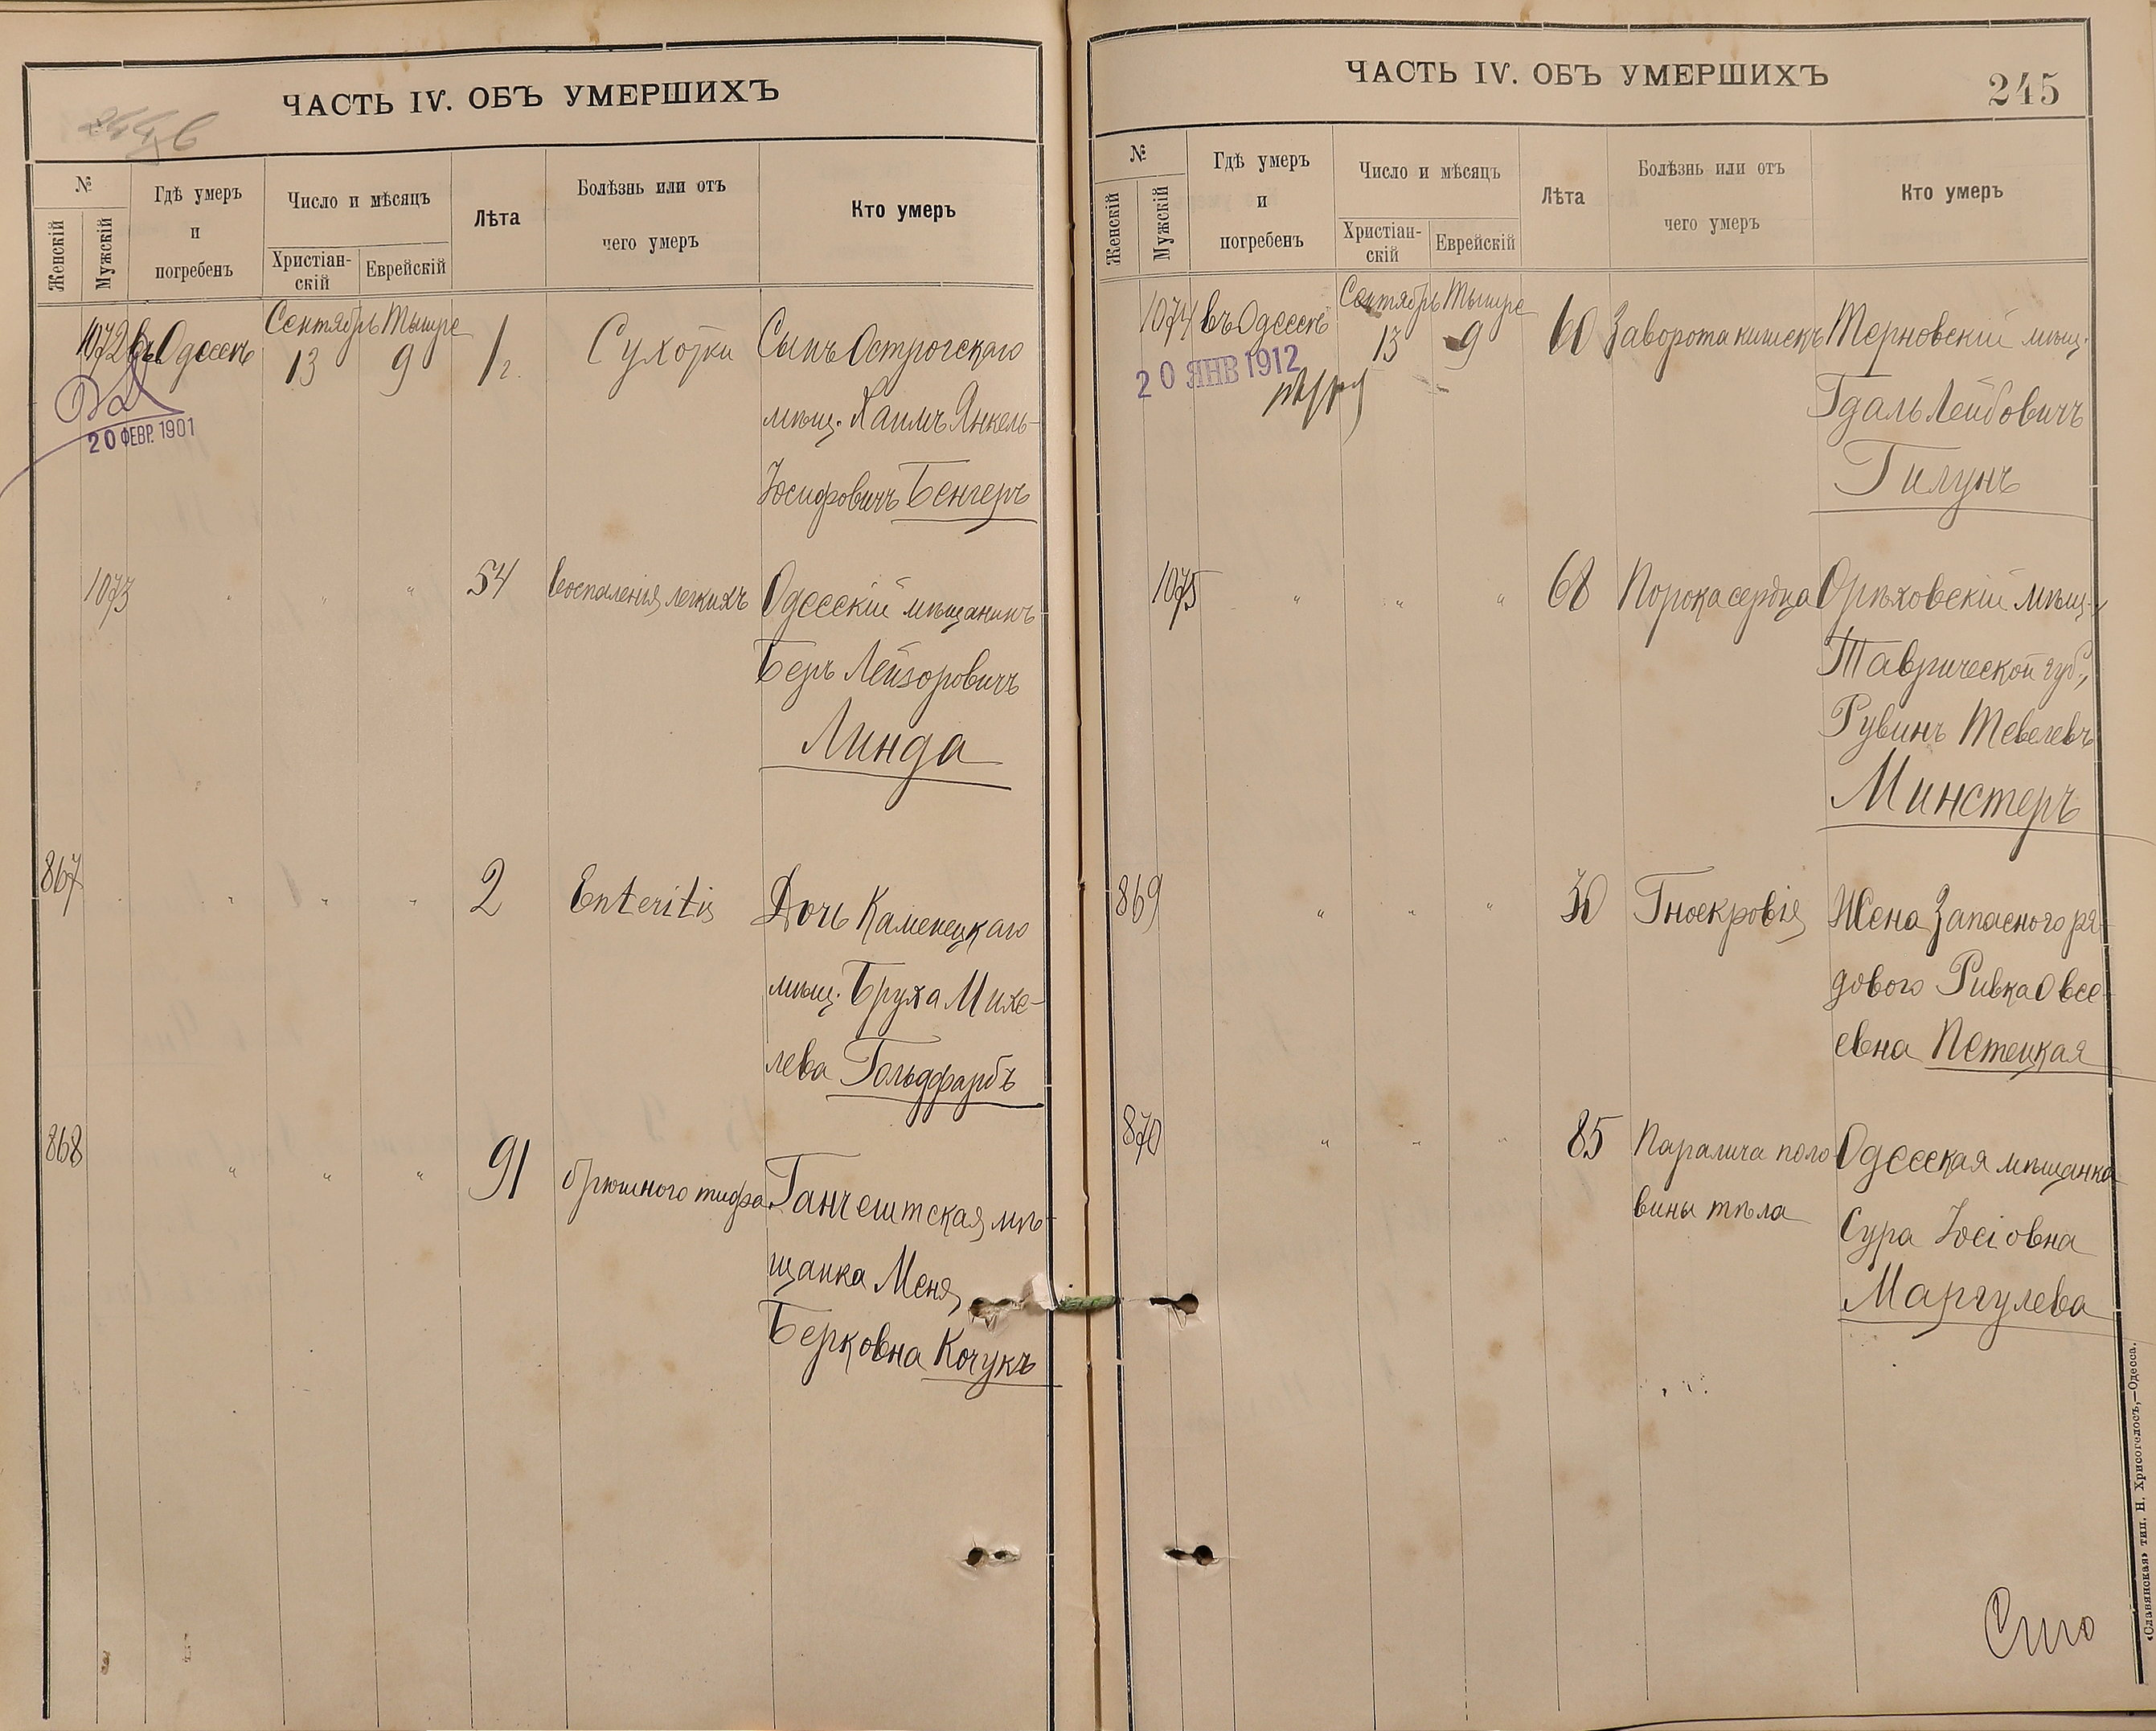 ЧАСТЬ IV. ОБЪ УМЕРШИХЪ
№
Женскій
Мужскій
Гдѣ умеръ
и
погребенъ
Число и мѣсяцъ
Христіан-
скій
Еврейскій
Лѣта
Болѣзнь или отъ
чего умеръ
Кто умеръ
1072 въ Одессѣ Сентябрь 13 Тышре 9 1 г. Сухотки Сынъ Острогскаго
мѣщ. Хаимъ Янкель-
Іосифовичъ Бенгеръ
20 ФЕВР. 1901
1073 " " " 54 Воспаленія легкихъ Одесскій мѣщанинъ
Беръ Лейзоровичъ
Линда
867 " " " 2 Enteritis Дочь Каменецкаго
мѣщ. Бруха Михе-
лева Гольдфарбъ
868 " " " 91 брюшного тифа Ганчештская мѣ-
щанка Меня
Берковна Кочукъ
ЧАСТЬ IV. ОБЪ УМЕРШИХЪ
245
№
Женскій
Мужскій
Гдѣ умеръ
и
погребенъ
Число и мѣсяцъ
Христіан-
скій
Еврейскій
Лѣта
Болѣзнь или отъ
чего умеръ
Кто умеръ
1074 въ Одессѣ Сентябрь 13 Тышре 9 60 Заворота кишекъ Терновскій мѣщ.
Гдаль Лейбовичъ
Гилунъ
20 ЯНВ 1912
1075 " " " 68 Порока сердца Орѣховскій мѣщ.,
Таврической губ.,
Рувинъ Тевелевъ
Минстеръ
869 " " " 30 Гноекровія Жена Запасного ря-
дового Ривка Овсе-
евна Петецкая
870 " " " 85 Паралича поло-
вины тѣла
Одесская мѣщанка
Сура Іосіовна
Маргулева
«Славянская» тип. Н. Хрисогелосъ,—Одесса.